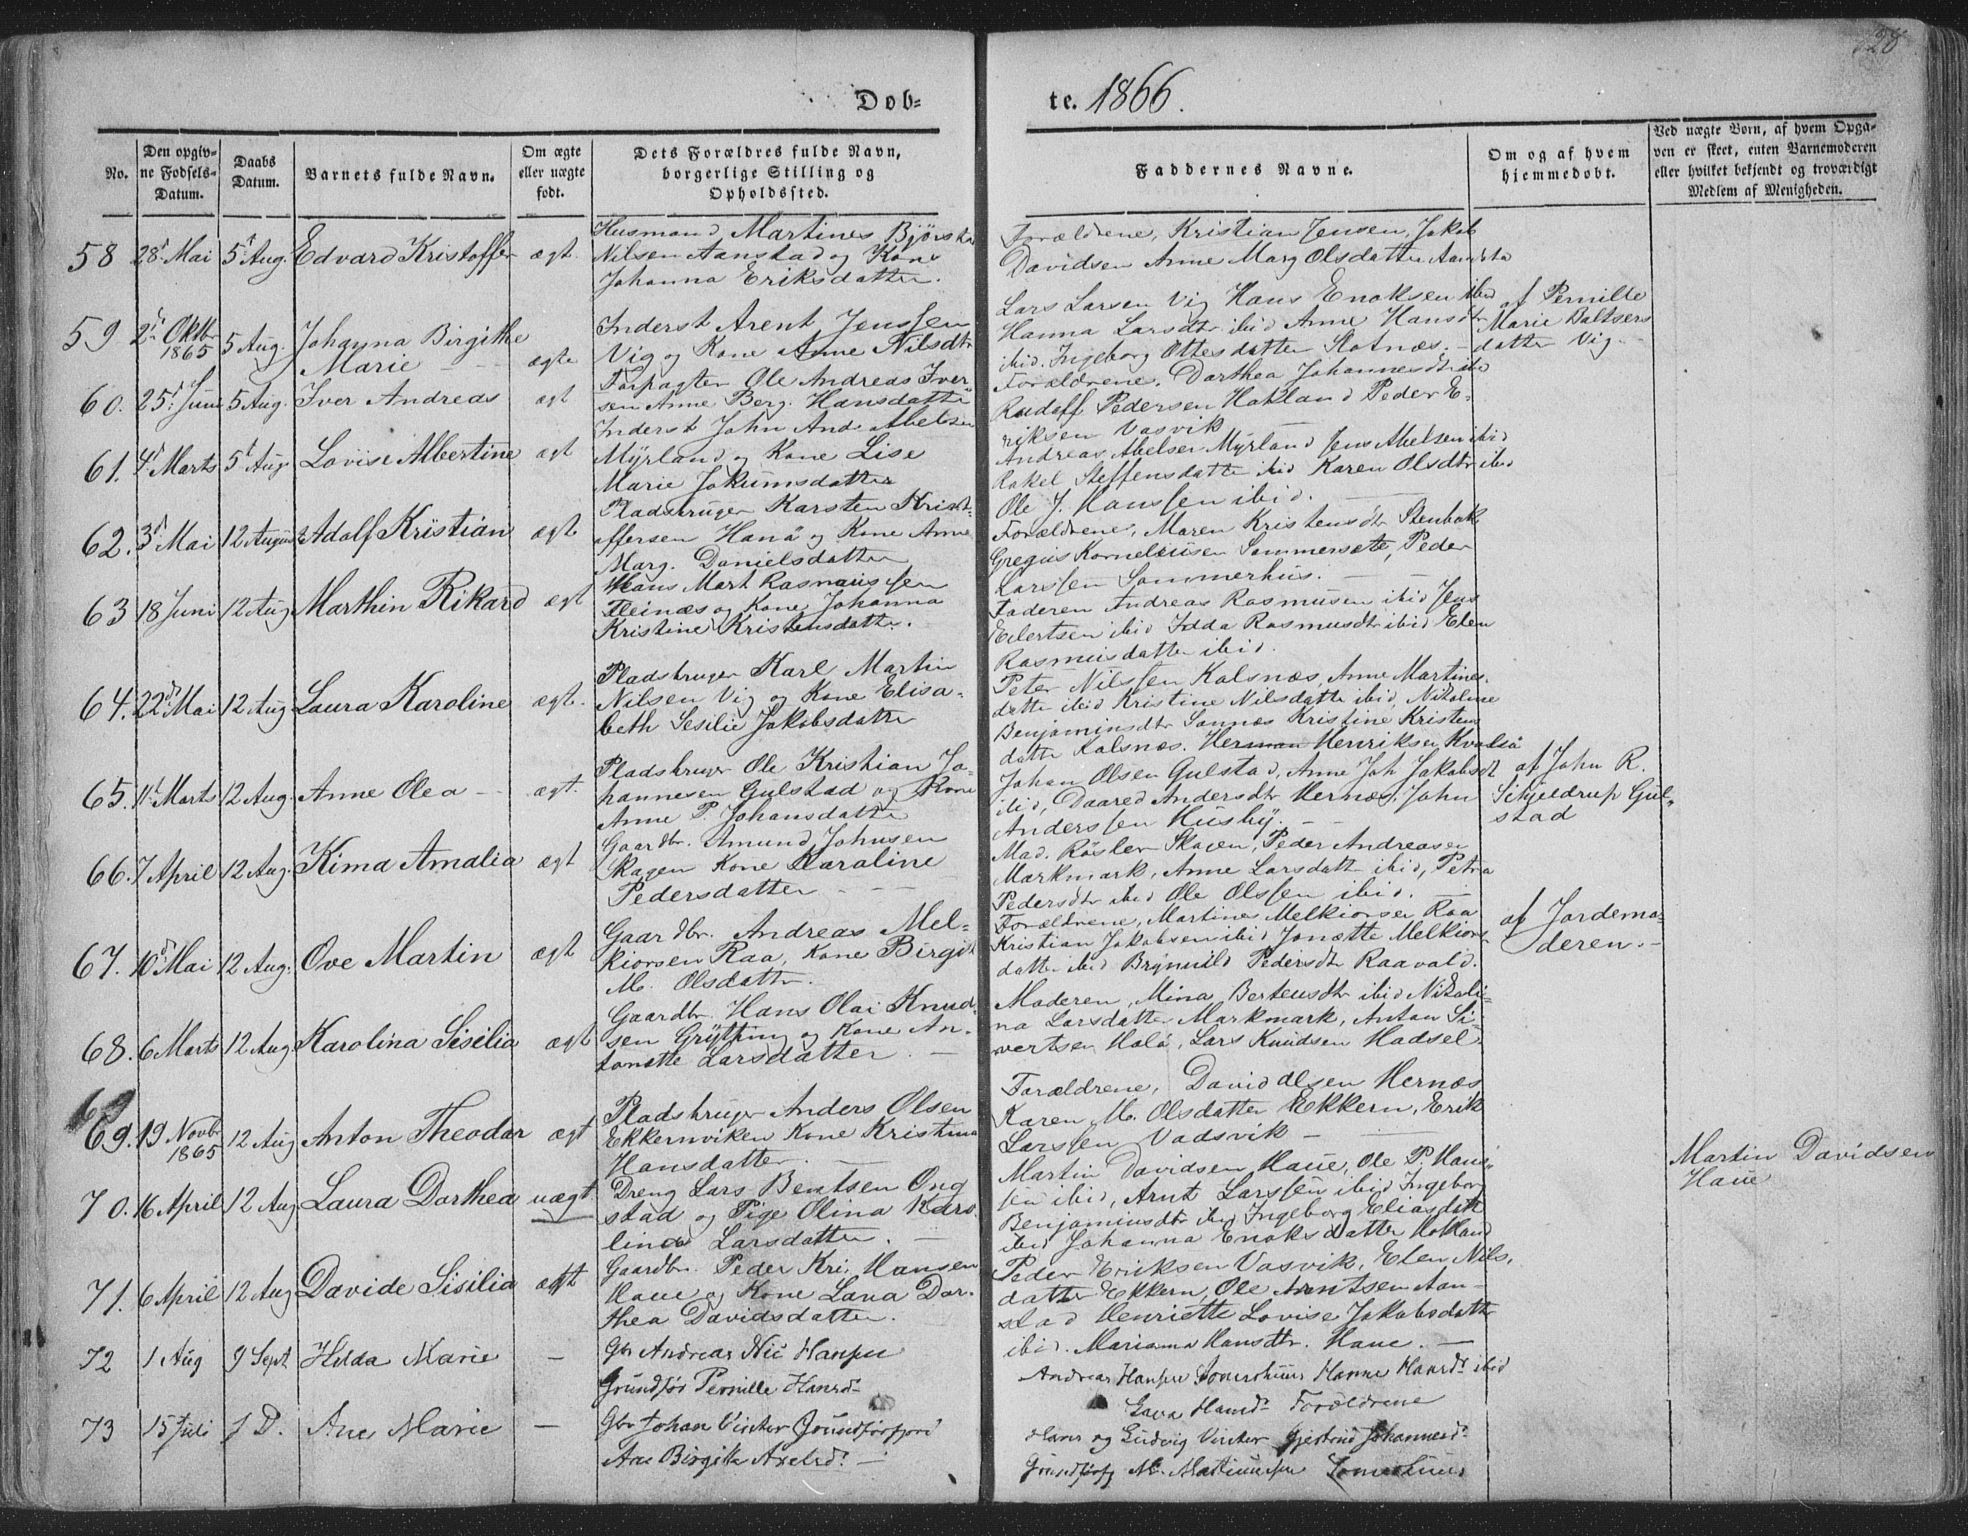 28
Døb-
te. 1866.
No.
Den opgiv-
ne Fødsels-
Datum.
Daabs
Datum.
Barnets fulde Navn.
Om ægte
eller uægte
født.
Dets Forældres fulde Navn,
borgerlige Stilling og
Opholdssted.
Faddernes Navne.
Om og af hvem
hjemmedøbt.
Ved uægte Børn, af hvem Opga-
ven er skeet, enten Barnemoderen
eller hvilket bekjendt og troværdigt
Medlem af Menigheden.
58 28d Mai 5t Aug. Edvard Kristoffer ægt.
Husmand, Martines Bjørsta
Nilsen Aanstad og Kone
Johanna Eriksdatter.
Forældrene, Kristian Jensen, Jakob
Davidsen Anne Marg Olsdatter Aansta
59 2d Oktbr 1865 5 Aug. Johanna Birgithe
Marie ægte
Inderst Arent Jenssen
Vig og Kone Anne Nilsdtr
Lars Larsen Vig Hans Enoksen ibid
Hanna Larsdtr ibid Anne Hansdtr
ibid. Ingeborg Ottesdatter Slotnæs.
af Pernille
Marie Baltsers
datter Vig
60. 25d Juni 5 Aug. Iver Andreas ægt
Forpagter Ole Andreas Iver
sen Anne Berg. Hansdatter
Forældrene. Dorthea Johannesdtr ibid
Rudolf Pedersen Hokland Peder E-
riksen Vasvik
61. 4d Marts 5t Aug Lovise Albertine ægt
Inderst John And. Abelsen
Myrland og Kone Lise
Marie Jokumsdatter
Andreas Abelsen Myrland Jens Abelsen ibid
Rakel Steffensdatter ibid Karen Olsdtr ibid
Ole J. Hanssen ibid.
62. 3d Mai 12 August Adolf Kristian ægte
Pladsbruger Karsten Krist-
offersen Hanø og Kone Anne
Marg. Danielsdatter
Forældrene, Maren Kristensdtr Stenbak
Gregus Korneliusen Sommersæte, Peder
Larssen Sommerhus.
63 18 Juni 12 Aug Marthin Rikard ægt
Hans Mart Rasmussen
Fleinæs og Kone Johanna
Kristine Kristensdatter.
Faderen Andreas Rasmusen ibid Jens
Eilertsen ibid Idda Rasmusdtr ibid Elen
Rasmusdatter ibid.
64. 22d Mai 12 Aug Laura Karoline ægte.
Pladsbruger Karl Martin
Nilsen Vig og Kone Elisa-
beth Sesilie Jakobsdatter
Peter Nilssen Kalsnæs, Anne Martines-
datter ibid Kristine Nilsdatter ibid, Nikoline
Benjaminsdtr Sannæs Kristine Kristens
datter Kalsnæs. Herman Henriksen Kvalsø
65. 11d Marts 12 Aug. Anne Olea ægt.
Pladsbruger Ole Kristian Jo-
hannesen Gulstad og Kone
Anne P. Johansdatter
Johan Olsen Gulstad, Anne Joh Jakobsdt
ibid, Daared Andersdtr Hernæs, John
Anderssen Husby.
af John R.
Schjeldrup Gul-
stad
66. 7 April 12 Aug. Kima Amalia ægt
Gaardbr. Amund Johnsen
Skagen Kone Karoline
Pedersdatter
Mad. Røsler Skagen, Peder Andreasen
Markmark, Anne Larsdatt ibid, Petra
Pedersdtr ibid Ole Olssen ibid.
67. 10d Mai 12 Aug. Ove Martin ægt
Gaardbr. Andreas Mel-
kiorsen Raa, Kone Birgit
M. Olsdatter.
Forældrene, Martines Melkiorsen Raa
Kristian Jakobsen ibid Jonætte Melkiors
datter ibid Brynnild Pedersdtr Raavold.
af Jordemo-
deren.
68. 6 Marts 12 Aug Karolina Sisilia ægt
Gaardbr. Hans Olai Knud-
sen Grytting og Kone An-
tonette Larsdatter.
Moderen, Mina Bertensdtr ibid Nikoli-
na Larsdatter Markmark, Antan Si-
vertsen Holø, Lars Knudsen Hadsel.
69
69. 19 Novb 1865 12 Aug Anton Theodor ægt
Pladsbruger Anders Olsen
Ekkernviken Kone Kristina
Hansdatter.
Forældrene, David Olsen Hernæs
Karen M. Olsdatter Ekkern, Erik
Larssen Vadsvik
70. 16 April 12 Aug Laura Dorthea uægt
Dreng Lars Bentsen Ong
stad og Pige Olina Karo
linde Larsdatter.
Martin Davidsen Haue, Ole P. Hans-
sen ibid, Arnt Larssen ibid Ingeborg
Benjaminsdtr ibid Ingeborg Eliasdatt
ibid Johanna Enoksdatter Hokland
Martin Davidsen
Haue
71. 6 April 12 Aug Davide Sisilia ægte
Gaardbr. Peder Kri. Hansen
Haue og Kone Lava Dor-
thea Davidsdatter.
Peder Eriksen Vasvik, Elen Nils,
datter Ekkern, Ole Arntsen Aan-
stad Henriette Lovise Jakobsdatter
ibid. Marianna Hansdtr. Haue.
72 1 Aug 9 Sept Hilda Marie —
Gbr Andreas Nic Hansen
Grundfør Pernille Hansdr
Andreas Hansen Hanne Hansdr ibid
Hansdr Forældrene
73 15 Juli 1 D. Ane Marie —
Gbr Johan Vinter Grundførfjord
Ane Birgitte Axelsdr.
Hans og Ludvig Vinter Gjertrud Johannesdr